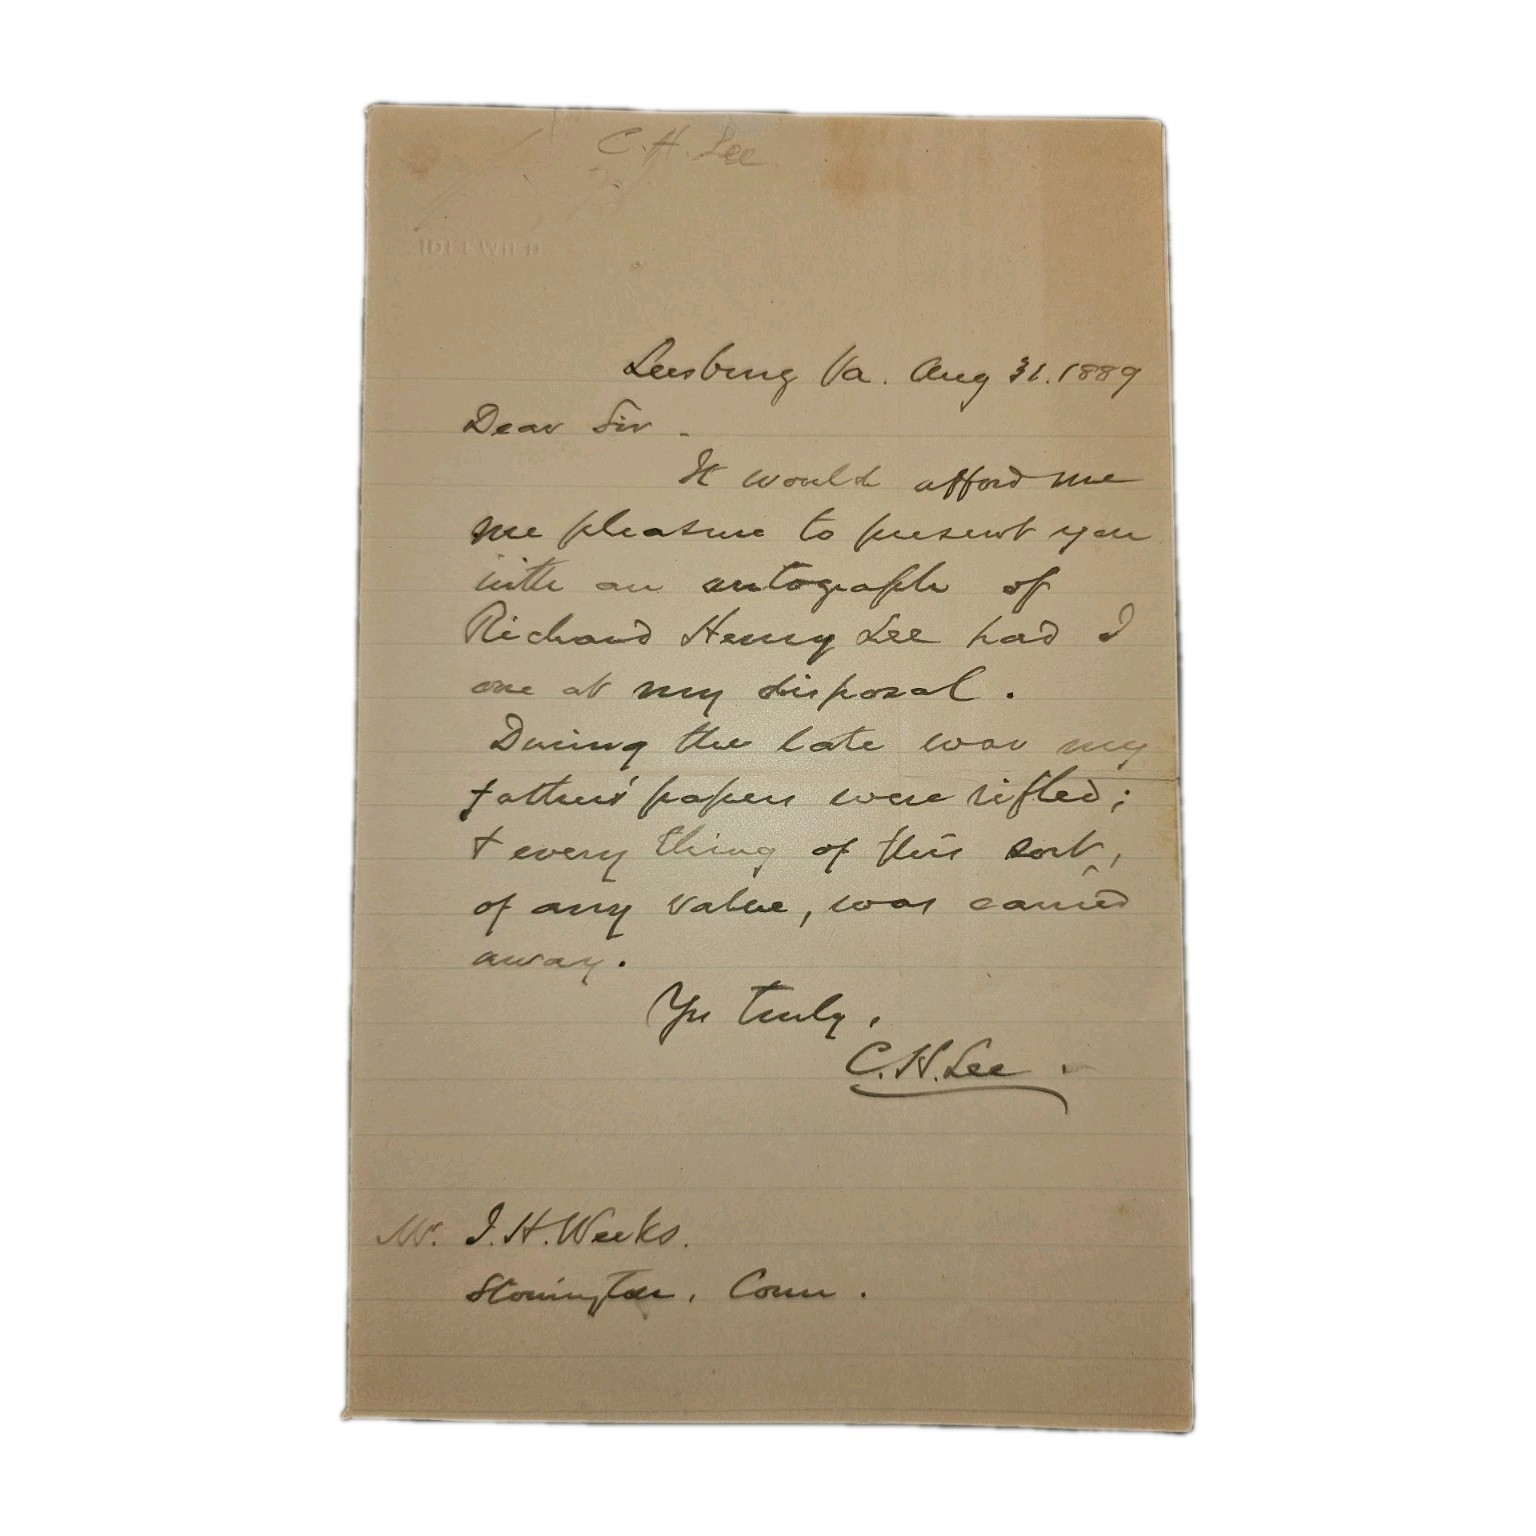 C. H. Lee
IDLEWILD
Leesburg Va. Aug 31. 1889
Dear Sir -
It would afford me
me pleasure to present you
with an autograph of
Richard Henry Lee had I
one at my disposal.
During the late war my
father's papers were rifled;
& every thing of this sort,
of any value, was carried
away.
Yrs truly,
C. H. Lee.
Mr. I. H. Weeks.
Stonington, Conn.